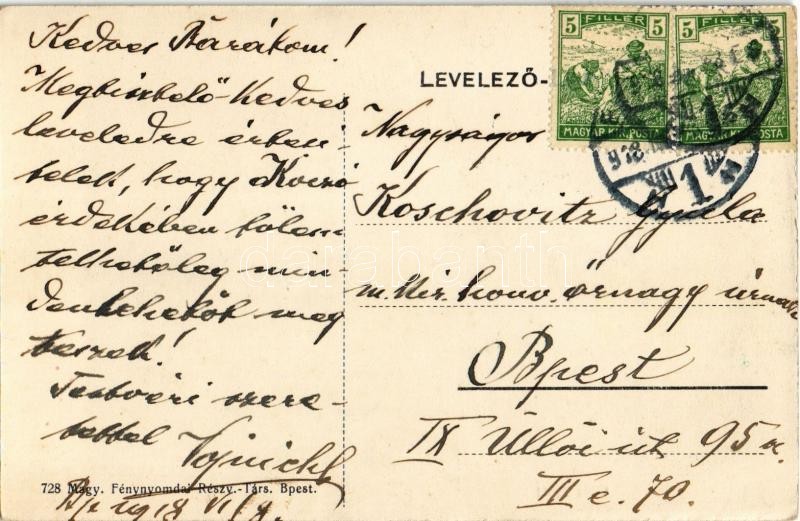 Kedves Barátom!
Megbisztelő kedves
leveledre érte-
sitelek, hogy a Koczó
érdekében tőlem
telhetőleg min-
den lehetőt meg
teszek!
Testvéri szere-
tettel Vojnich
Bp 1918 VI/9.
728 Magy. Fénynyomdai Részv.-Társ. Bpest.
LEVELEZŐ-
5 FILLÉR 5
MAGYAR KIR. POSTA
5 FILLÉR 5
MAGYAR KIR. POSTA
Nagyságos
Koschovitz Gyula
m. kir. honv. őrnagy úrnak
Bpest
IX Üllői út 95 sz.
III e. 70.
darabanth